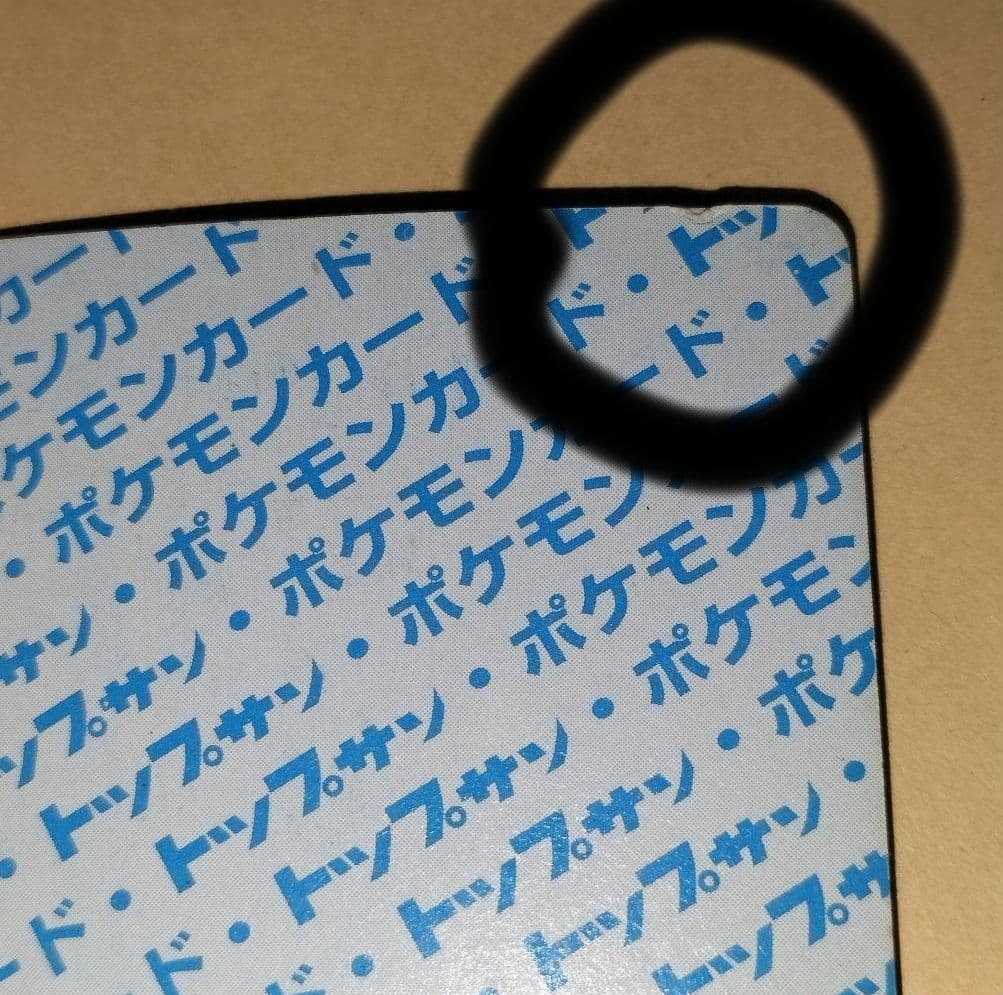 カード
モンカード
ケモンカード・
・ポケモンカード
サン・ポケモンカード・トッ
ップサン・ポケモンカード・ト
・トップサン・ポケモンド
ド・トップサン・ポケモンカー
ド・トップサン・ポケモン
・トップサン・ポケ
トップサン・
トップサ